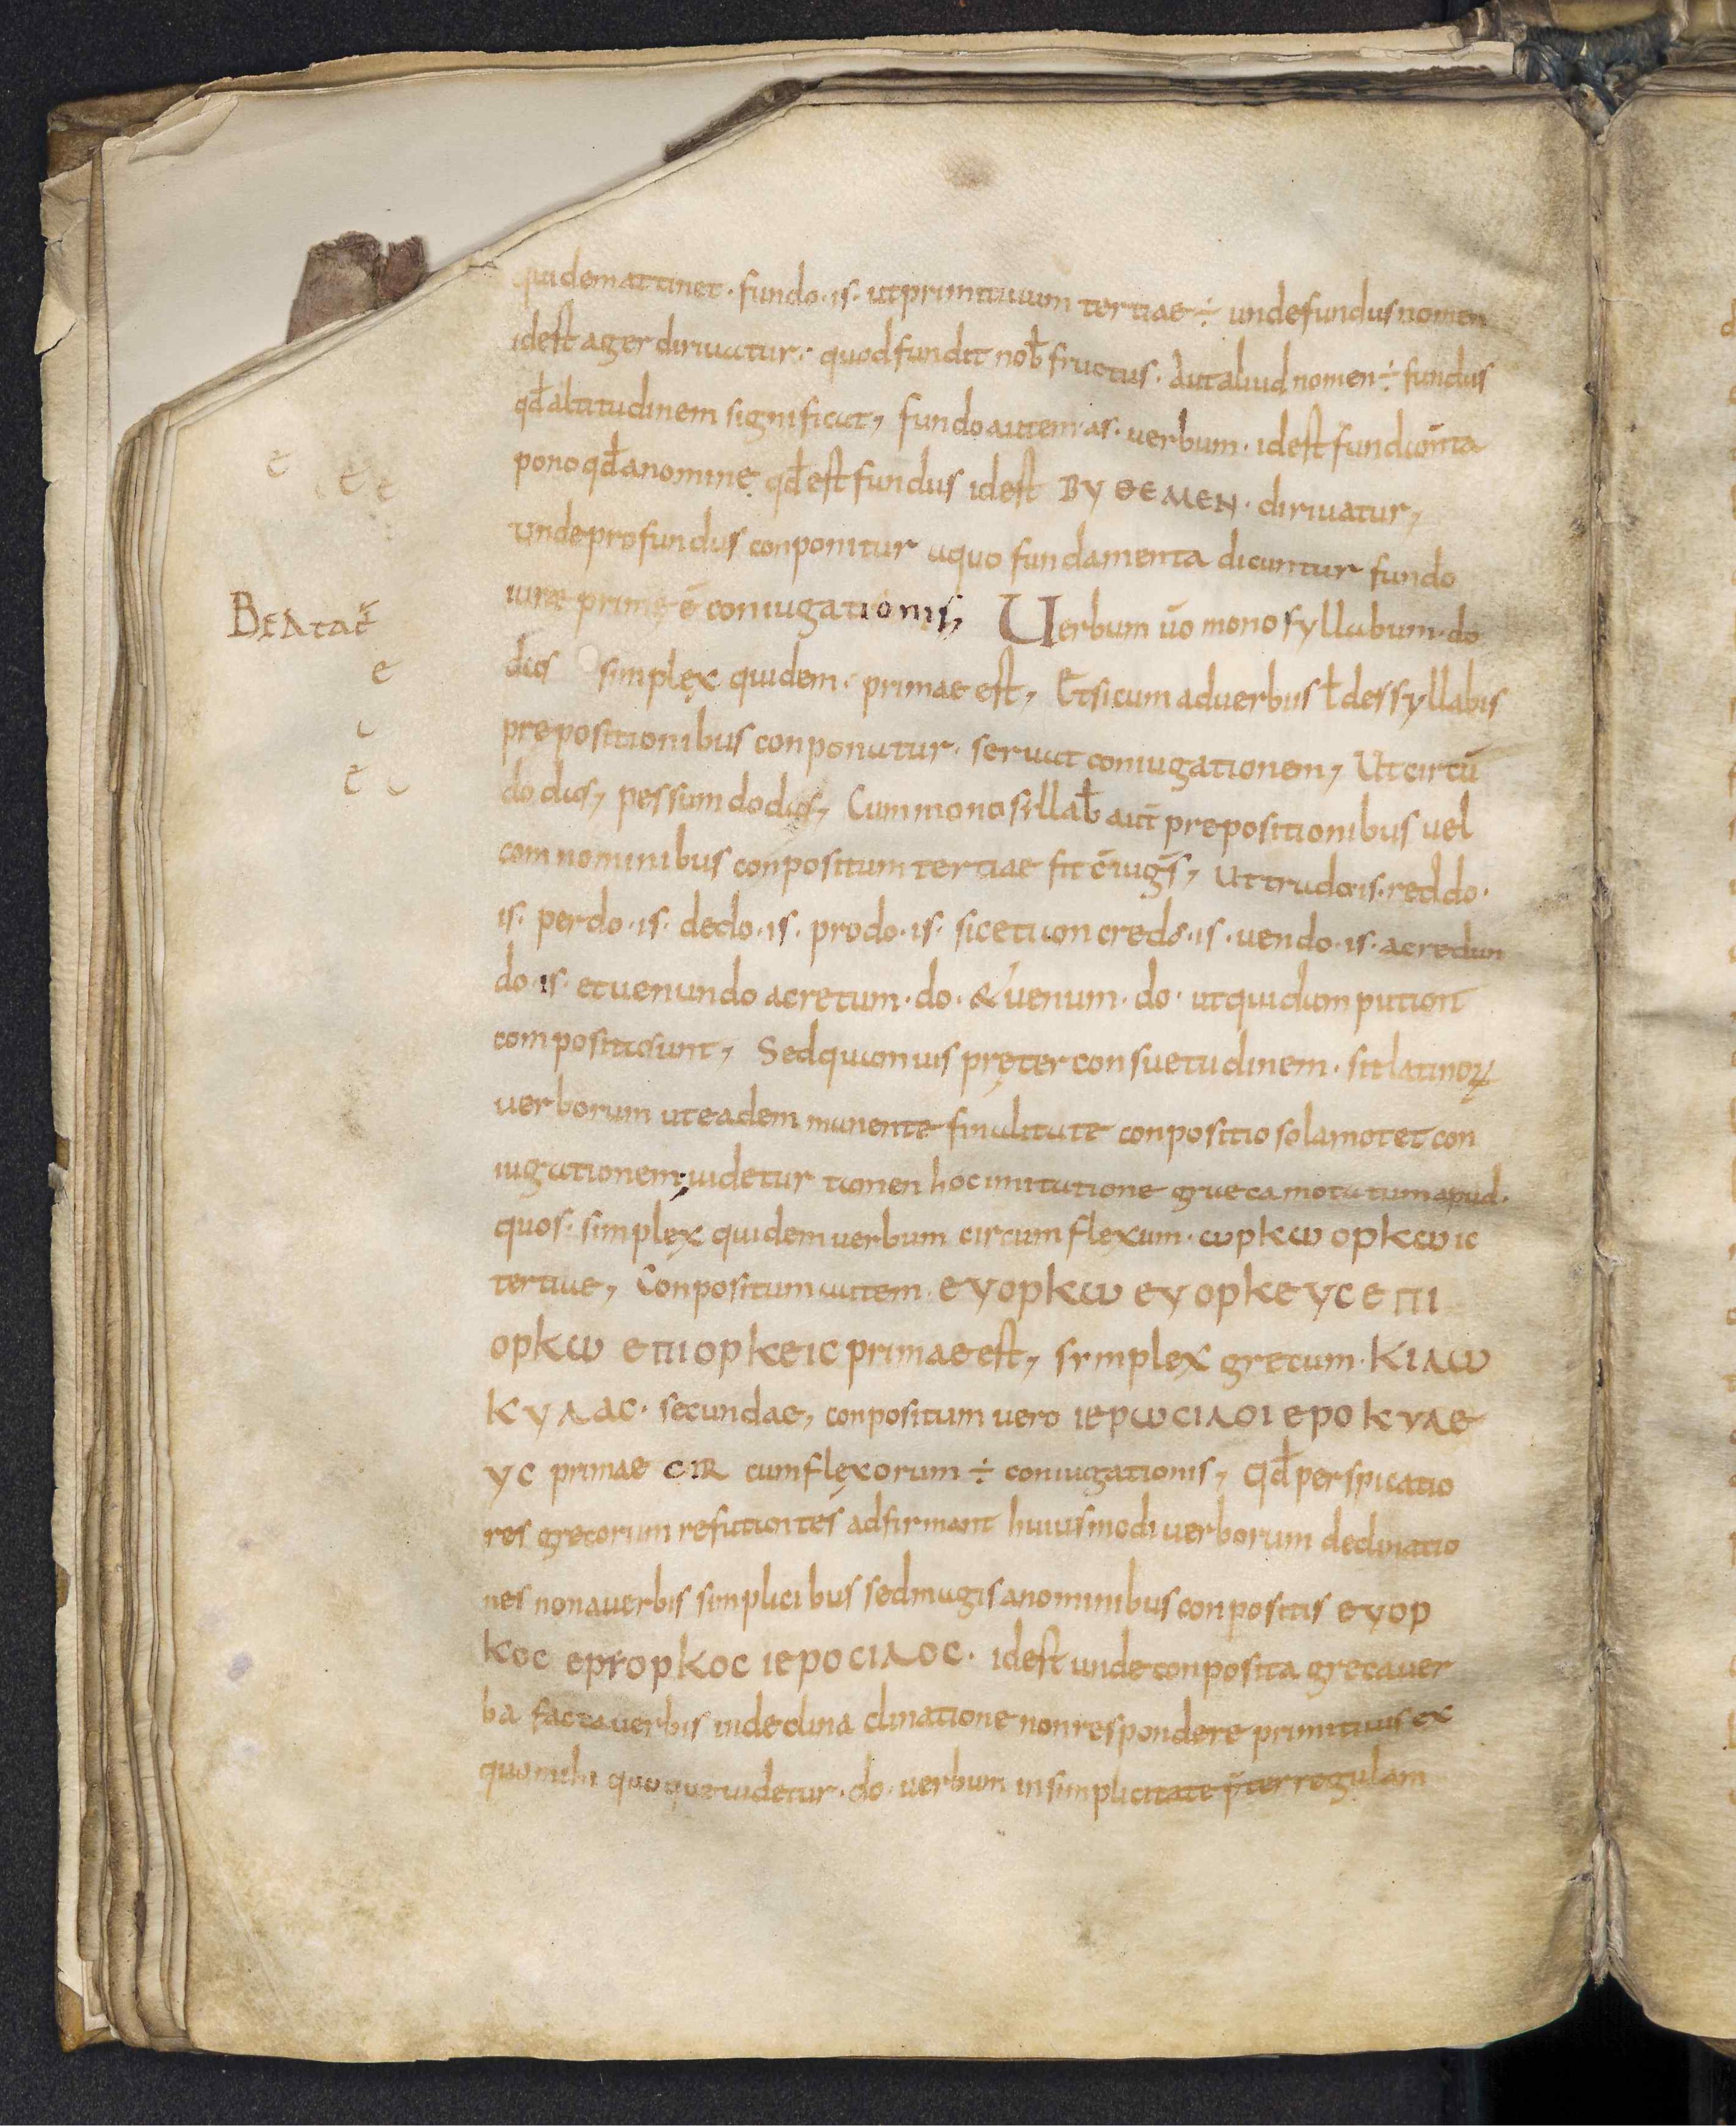 quidem attinet · fundo · is · ut primitiuum tertiae ÷ unde fundus nomen
id est ager diriuatur · quod fundit noƀ fructus · Aut aliud nomen ÷ fundus
qđ altitudinem significat, fundo autem · as · uerbum · id est fundam̄ta
pono qđ a nomine qđ est fundus id est ΒΥΘΕΜΕΝ · diriuatur,
unde profundus conponitur a quo fundamenta dicuntur fundo
iure primę ē coniugationis, Uerbum ūo monosyllabum · do
das simplęx quidem · primae est, Et si cum aduerbiis ł des syllabis
prepositionibus conponatur · seruat coniugationem, Ut circū
do das, pessum do das, Cum monosillaƀ aut̄ prepositionibus uel
com nominibus conpositum tertiae fit c̄iuḡs, Ut trado · is · reddo ·
is · perdo · is · dedo · is · prodo · is · sic etiam credo · is · uendo · is · a credun
do · is · et uenundo a cretum · do · & uenum · do · ut quidam putant
composita sunt, Sed quamuis pręter consuetudinem · sit latinoꝝ
uerborum ut eadem manente finalitate conpositio sola motet con
iugationem, uidetur tamen hoc imitatione greca motatum apud ·
quos · simplęx quidem uerbum circumflexum · ωρκω ορκωις
tertiae, Conpositum autem · ευορκω ευορκευς επι
ορκω επιορκεις primae est, symplex grecum · κιλω
κυλας · secundae, conpositum uero ιερωσιλοι εροκυλε
υς primae CIR cumflęxorum ÷ coniugationis, Qđ perspicatio
res grecorum refutantes adfirmant huiusmodi uerborum declinatio
nes non a uerbis simplicibus sed magis a nominibus conpositis ευορ
κος ερτορκος ιεροσιλος · id est unde conposita greca uer
ba facta uerbis in declina clinatione non respondere primitiuis ex
quo mihi quoque uidetur · do · uerbum in simplicitate p̄ter regulam